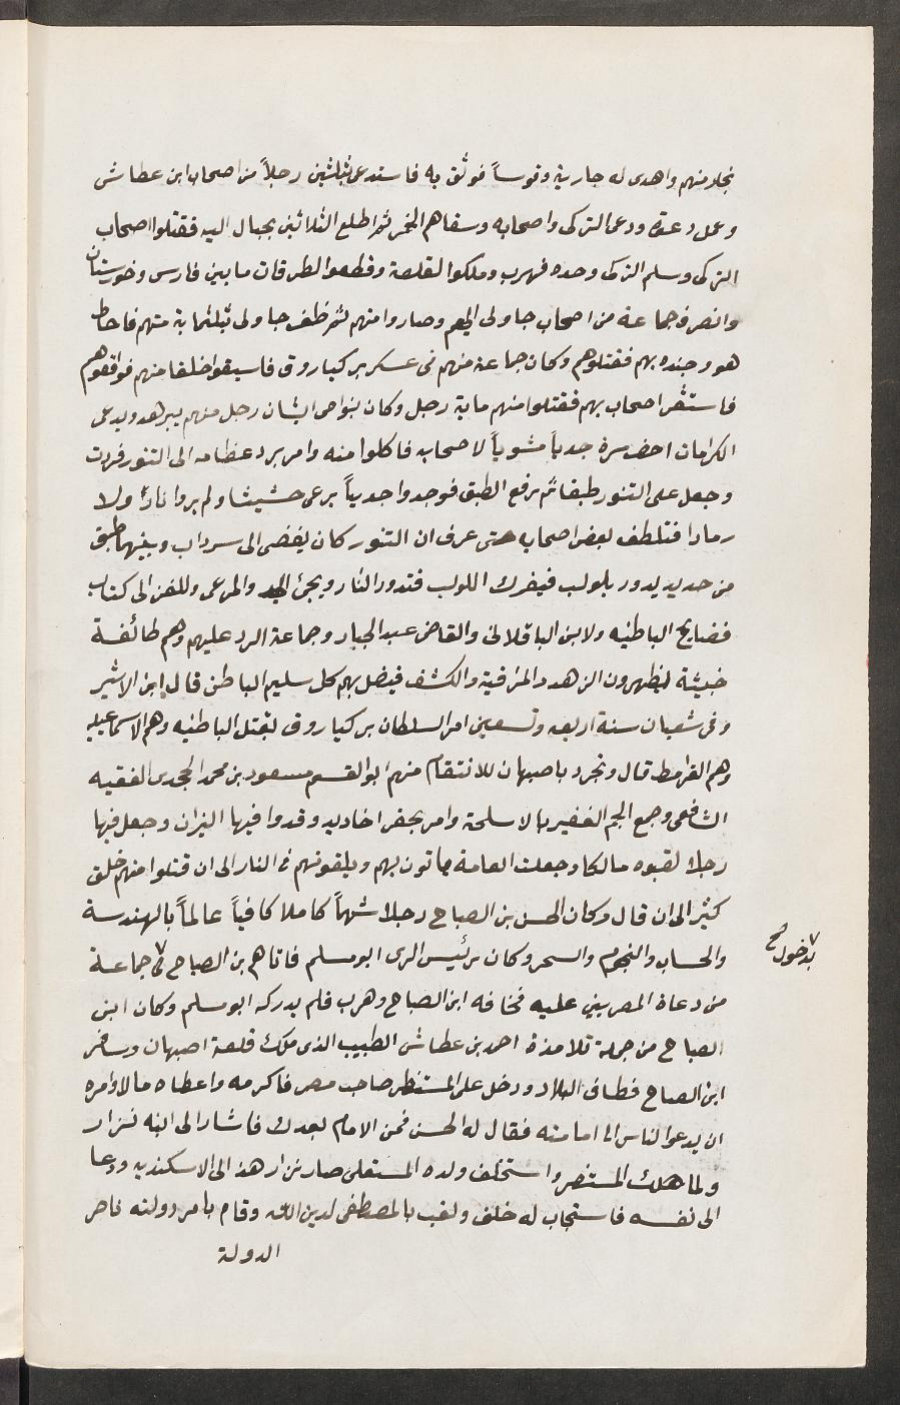 نجلا منهم واهدى له جارية وفوساً فوثق به فاستدعى بثلثين رجلاً من اصحاب ابن عطاش
وعمل دعوة ودعى التركى واصحابه وسقاهم الخمر ثم اطلع الثلاثين بحبال اليه فقتلوا اصحاب
التركى وسلم التركى وحده فهرب وملكوا القلعة وقطعوا الطرقات ما بين فارس وخورستان
وانصرف جماعة من اصحاب جاولى اليهم وصاروا منهم ثم ظفر جاولى بثلثماية منهم فاحاط
هو وجنده بهم فقتلوهم وكان جماعة منهم فى عسكر بركياروق فاستقوا خلقا منهم فوافقوهم
فاستشعر اصحابه بهم فقتلوا منهم ماية رجل وكان بنواحى رجل منهم يتزهد ويدعى
الكرامات احضر مرة جدياً مشوياً لاصحابه فاكلوا منه وامر برد عظامه الى التنور فردت
وجعل على التنور طبقا ثم رفع الطبق فوجدوا جدياً يرعى حشيشا ولم يروا نارا ولا
رمادا فتلطف بعض اصحابه حتى عرف ان التنور كان يفضى الى سرداب وبينهما طبق
من حديد يدور بلولب فيفرك اللولب فتدور النار ويجئ الجدى والمرعى وللغزالى كتاب
فضايح الباطنيه ولابن الباقلانى والقاضى عبد الجبار وجماعة الرد عليهم وهم طائفة
خبيثة يظهرون الزهد والمراقبة والكشف فيضل بهم كل سليم الباطن قال ابن الاثير
وفى شعبان سنة اربعه وتسعين امر السلطان بركياروق بقتل الباطنيه وهم الاسماعيليه
وهم القرامط قال وتجرد باصبهان للانتقام منهم ابو القسم مسعود بن محمد الخجندى الفقيه
الشافعى وجمع الجم الغفير بالاسلحة وامر بحفر اخاديد وقدوا فيها النيران وجعل فيها
رجلا لقبوه مالكا وجعلت العامة ياتون بهم ويلقونهم فى النار الى ان قتلوا منهم خلق
كثير الى ان قال وكان الحسن بن الصباح رجلا شهماً كاملا كافياً عالماً بالهندسة
والحساب والنجوم والسحر وكان برئيس الرى ابو مسلم فاتاهم بن الصباح جماعة
من دعاة المصريين عليه فخافه ابن الصباح وهرب فلم يدركه ابو مسلم وكان ابن
الصباح من جملة تلامذة احمد بن عطاش الطبيب الذى ملك قلعة اصبهان وسافر
ابن الصباح فطاف البلاد ودخل على المستنظر صاحب مصر فاكرمه واعطاه مالا وامره
ان يدعو الناس الى امامته فقال له الحسن فمن الامام بعدك فاشار الى ابنه نزار
ولما هلك المستنصر واستخلف ولده المستعلى صار نزار هذا الى الاسكندريه ودعا
الى نفسه فاستجاب له خلق ولقب بالمصطفى لدين الله وقام بامر دولته ناصر
الدولة
بدخول صح